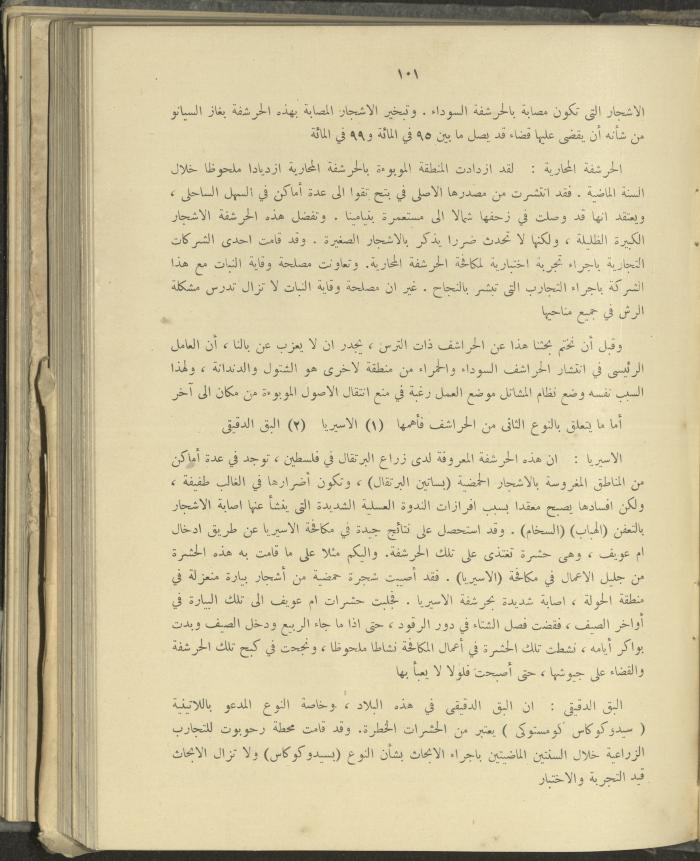 ١٠١
الاشجار التى تكون مصابة بالحرشفة السوداء . وتبخير الاشجار المصابة بهذه الحرشفة بغاز السيانو
من شأنه أن يقضى عليها قضاء قد يصل ما بين ٩٥ فى المائة و٩٩ فى المائة
الحرشفة المحارية : لقد ازدادت المنطقة الموبوءة بالحرشفة المحارية ازديادا ملحوظا خلال
السنة الماضية . فقد انتشرت من مصدرها الاصلى فى بتح تقوا الى عدة أماكن فى السهل الساحلى ،
ويعتقد انها قد وصلت فى زحفها شمالا الى مستعمرة بنيامينا . وتفضل هذه الحرشفة الاشجار
الكبيرة الظليلة ، ولكنها لا تحدث ضررا يذكر بالاشجار الصغيرة . وقد قامت احدى الشركات
التجارية باجراء تجربة اختبارية لمكافحة الحرشفة المحارية. وتعاونت مصلحة وقاية النبات مع هذا
الشركة باجراء التجارب التى تبشر بالنجاح . غير ان مصلحة وقاية النبات لا تزال تدرس مشكلة
الرش فى جميع مناحيها
وقبل أن نختم بحثنا هذا عن الحراشف ذات الترس ، يجدر ان لا يعزب عن بالنا ، أن العامل
الرئيسى فى انتشار الحراشف السوداء والحمراء من منطقة لاخرى هو الشتول والدندانة ، ولهذا
السبب نفسه وضع نظام المشاتل موضع العمل رغبة فى منع انتقال الاصول الموبوءة من مكان الى آخر
أما ما يتعلق بالنوع الثانى من الحراشف فأهمها (١) الاسيريا (٢) البق الدقيقى
الاسيريا : ان هذه الحرشفة المعروفة لدى زراع البرتقال فى فلسطين ، توجد فى عدة أماكن
من المناطق المغروسة بالاشجار الحمضية (بساتين البرتقال) ، وتكون أضرارها فى الغالب طفيفة ،
ولكن افسادها يصبح معقدا بسبب افرازات الندوة العسلية الشديدة التى ينشأ عنها اصابة الاشجار
بالتعفن (الهباب) (السخام) . وقد استحصل على نتائج جيدة فى مكافحة الاسيريا عن طريق ادخال
ام عويف ، وهى حشرة تغتذى على تلك الحرشفة. واليكم مثلا على ما قامت به هذه الحشرة
من جليل الاعمال فى مكافحة (الاسيريا) . فقد أصيبت شجرة حمضية من أشجار بيارة منعزلة فى
منطقة الحولة ، اصابة شديدة بحرشفة الاسيريا . فجلبت حشرات ام عويف الى تلك البيارة فى
أواخر الصيف ، فقضت فصل الشتاء فى دور الرقود ، حتى اذا ما جاء الربيع ودخل الصيف وبدت
بواكر أيامه ، نشطت تلك الحشرة فى أعمال المكافحة نشاطا ملحوظا ، ونجحت فى كبح تلك الحرشفة
والقضاء على جيوشها ، حتى أصبحت فلولا لا يعبأ بها
البق الدقيقى : ان البق الدقيقى فى هذه البلاد ، وخاصة النوع المدعو باللاتينية
( سيدوكوكاس كومستوكى ) يعتبر من الحشرات الخطرة. وقد قامت محطة رحوبوت للتجارب
الزراعية خلال السنتين الماضيتين باجراء الابحاث بشأن النوع (بسيدوكوكاس) ولا تزال الابحاث
قيد التجربة والاختبار